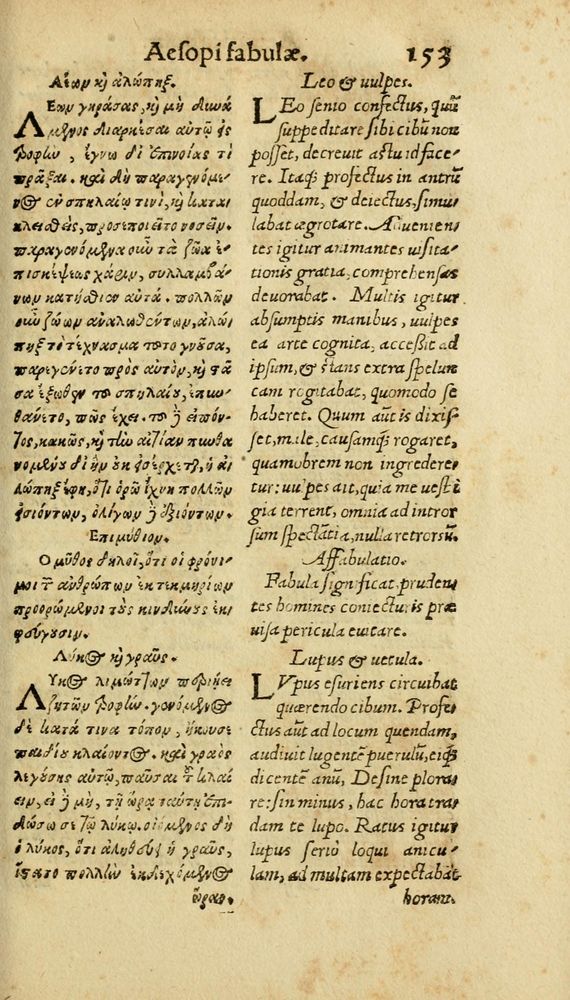 Aesopi fabulæ. 153
Λέων καὶ ἀλώπηξ.
Λέων γηράσας, καὶ μὴ δυνά
μενος διαρκέσαι αὑτῷ εἰς
τροφὴν, ἔγνω δι' ἐπινοίας τὶ
πρᾶξαι. καὶ δὴ παραγενόμε-
νος ἐν σπηλαίῳ τινὶ, καὶ κατα
κλειθεὶς, προσεποιεῖτο νοσεῖν.
παραγενόμενα οὖν τὰ ζῶα ἐ-
πισκέψεως χάριν, συλλαμβά-
νων κατήσθιεν αὐτά. πολλῶν
οὖν ζώων ἀναλωθέντων, ἀλώ
πηξ τὸ τέχνασμα τοῦτο γνοῦσα,
παρεγένετο πρὸς αὐτὸν, καὶ στᾶ
σα ἔξωθεν τοῦ σπηλαίου, ἐπυν
θάνετο, πῶς ἔχει. τοῦ δὲ εἰπόν-
τος, κακῶς, καὶ τὴν αἰτίαν πυνθα
νομένου δι' ἣν οὐκ εἰσέρχεται, ἡ ἀ
λώπηξ ἔφη, ὅτι ὁρῶ ἴχνη πολλῶν
εἰσιόντων, ὀλίγων δὲ ἐξιόντων.
Επιμύθιον.
Ο μῦθος δηλοῖ, ὅτι οἱ φρόνι-
μοι τῶν ἀνθρώπων ἐκ τεκμηρίων
προορώμενοι τοὺς κινδύνους ἐκ-
φεύγουσιν.
Λύκος καὶ γραῦς.
Λύκος λιμώττων περιῄει
ζητῶν τροφήν. γενόμενος
δὲ κατά τινα τόπον, ἤκουσε
παιδίου κλαίοντος. καὶ γραὸς
λεγούσης αὐτῷ, παῦσαι τοῦ κλαί
ειν, εἰ δὲ μὴ, τῇ ὥρᾳ ταύτῃ ἐπι-
δώσω σε τῷ λύκῳ. οἰόμενος δὴ
ὁ λύκος, ὅτι ἀληθεύει ἡ γραῦς,
ἵστατο πολλὴν ἐκδεχόμενος
ὥραν.
Leo & uulpes.
LEo senio confectus, quū
suppeditare sibi cibū non
posset, decreuit astu id face-
re. Itaq; profectus in antrū
quoddam, & deiectus, simu
labat ægrotare. Aduenien-
tes igitur animantes uisita-
tionis gratia, comprehensas
deuorabat. Multis igitur
absumptis manibus, uulpes
ea arte cognita, accessit ad
ipsum, & stans extra spelun
cam rogitabat, quomodo se
haberet. Quum aūt is dixis-
set, male, causamq; rogaret,
quamobrem non ingredere-
tur: uulpes ait, quia me uesti
gia terrent, omnia ad intror
sum spectātia, nulla retrorsū.
Affabulatio.
Fabula significat, pruden-
tes homines coniecturis præ
uisa pericula euitare.
Lupus & uetula.
LVpus esuriens circuibat
quærendo cibum. Profe-
ctus aūt ad locum quendam,
audiuit lugentē puerulū, eiq;
dicentē anū, Desine plora-
re: sin minus, hac hora tra-
dam te lupo. Ratus igitur
lupus serio loqui anicu-
lam, ad multam expectabat
horam.